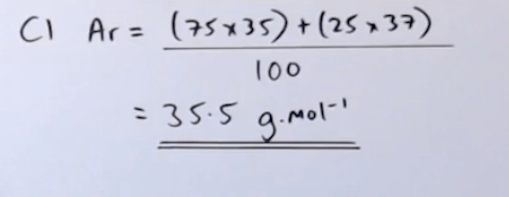 Cl Ar = (75 x 35) + (25 x 37)
100
= 35.5 g.mol⁻¹